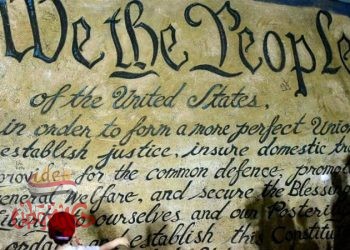 We the People
of the United States,
in order to form a more perfect Union
establish justice, insure domestic tra
provide for the common defence, promo
general Welfare, and secure the Blessing
Liberty to ourselves and our Posterity
ordain and establish this Constitu